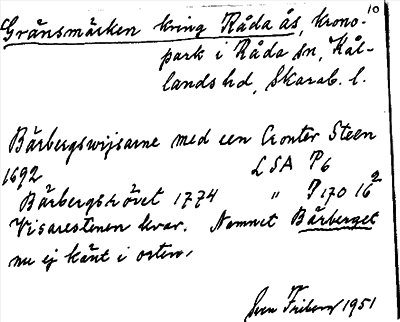 10
Gränsmärken kring Råda ås, krono-
park i Råda sn, Kål-
lands hd, Skarab. l.
Bårbergswijsarne med een Cronter Steen
1692 LSA P6
Bårbergsrövet 1774 " P170 16²
Visarestenen kvar. Namnet Bårberget
nu ej känt i orten,
Sven Friberg 1951